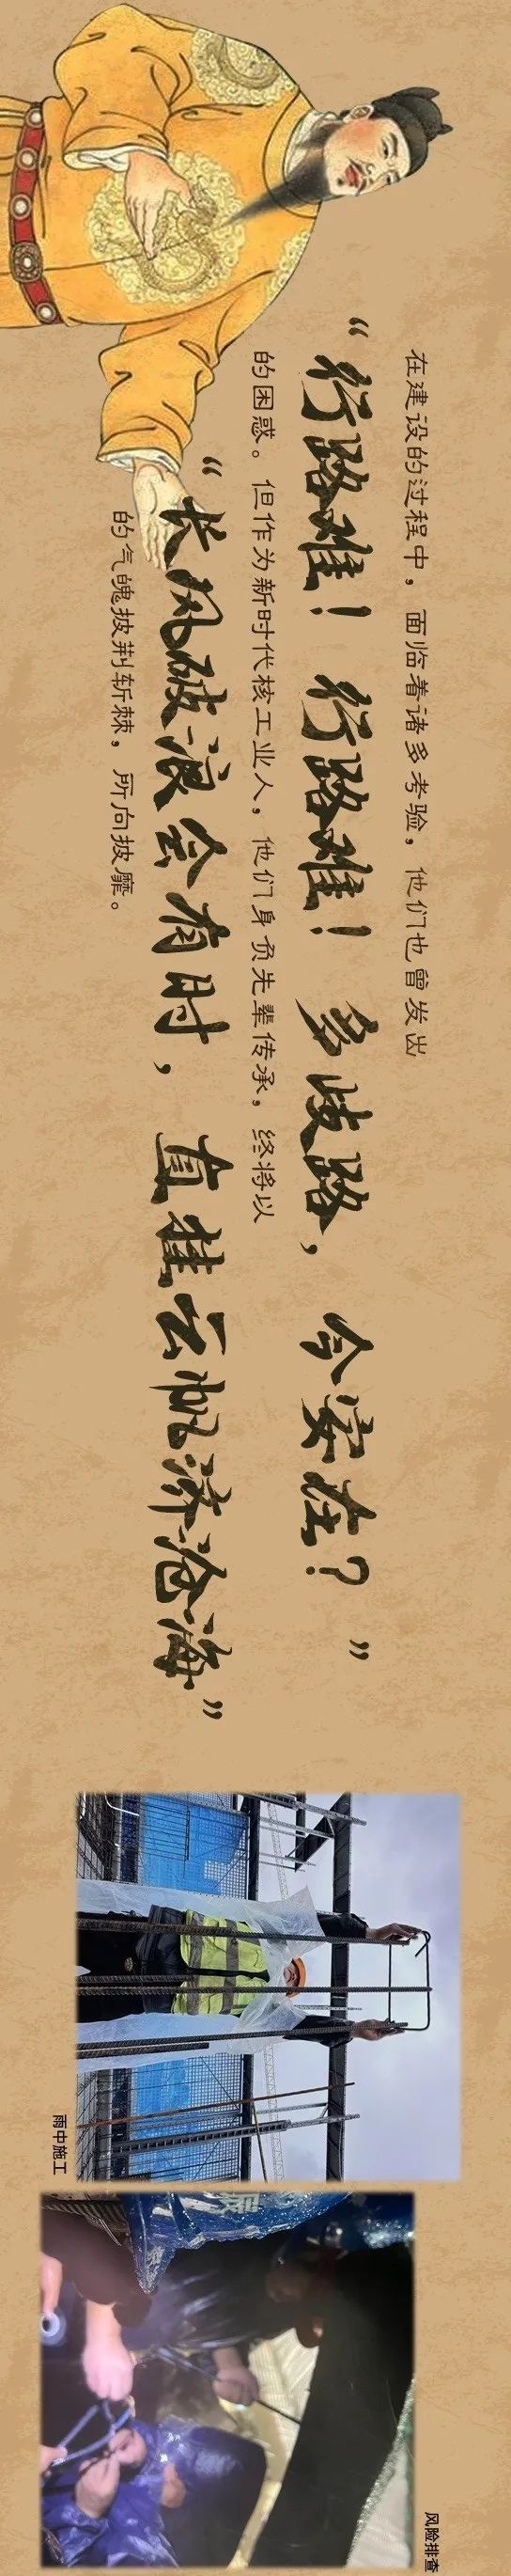 在建设的过程中，面临着诸多考验，他们也曾发出
“行路难！行路难！多歧路，今安在？”
的困惑。但作为新时代核工业人，他们身负先辈传承，终将以
“长风破浪会有时，直挂云帆济沧海”
的气魄披荆斩棘，所向披靡。
雨中施工
风险排查